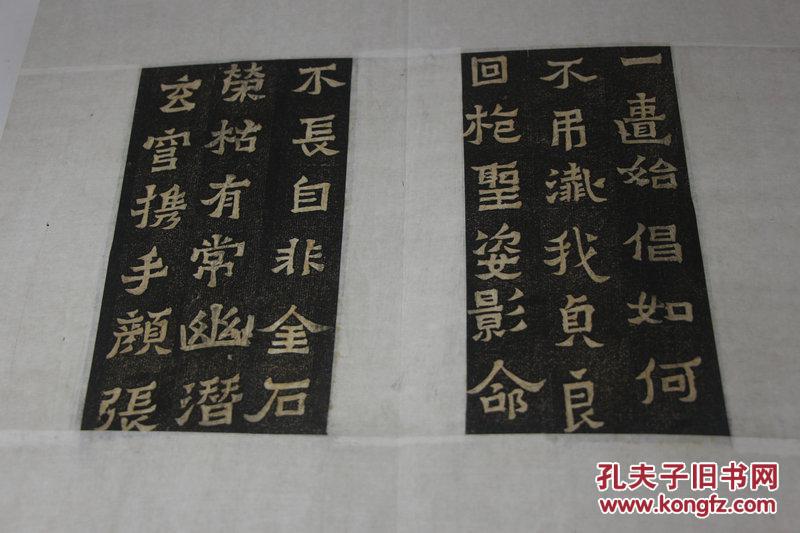 一匱始倡如何
不吊殲我貞良
回抱聖姿影命
不長自非金石
榮枯有常幽潛
玄穹携手顏張
孔夫子旧书网
www.kongfz.com